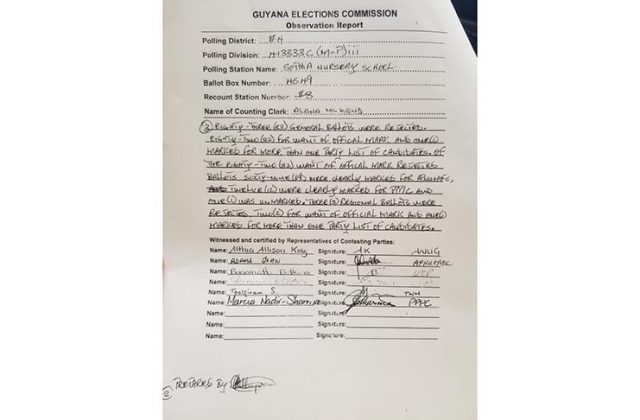 GUYANA ELECTIONS COMMISSION
Observation Report
Polling District: #4
Polling Division: 413333C (M-P) iii
Polling Station Name: SOPHIA NURSERY SCHOOL
Ballot Box Number:
Recount Station Number: #8
Name of Counting Clerk: ALANA
② EIGHTY-THREE (83) GENERAL BALLOTS WERE REJECTED.
EIGHTY-TWO (82) FOR WANT OF OFFICAL MARK AND ONE (1)
MARKED FOR MORE THAN ONE PARTY LIST OF CANDIDATES. OF
THE EIGHTY-TWO (82) WANT OF OFFICAL MARK REJECTED
BALLOTS SIXTY-NINE (69) WERE CLEARLY MARKED FOR APNU/AFC,
TWELVE (12) WERE CLEARLY MARKED FOR PPP/C AND
ONE (1) WAS UNMARKED. THREE (3) REGIONAL BALLOTS WERE
REJECTED TWO (2) FOR WANT OF OFFICIAL MARK AND ONE (1)
MARKED FOR MORE THAN ONE PARTY LIST OF CANDIDATES.
Witnessed and certified by Representatives of Contesting Parties:
Name: Allison King Signature: AK
Name: Signature: APNU/AFC
Name: Signature:
Name: Signature:
Name: S. Signature: TNM
Name: Marcia Nadir-Sharma Signature: PPP/C
Name: Signature:
Name: Signature:
Name: Signature:
② PREPARED BY